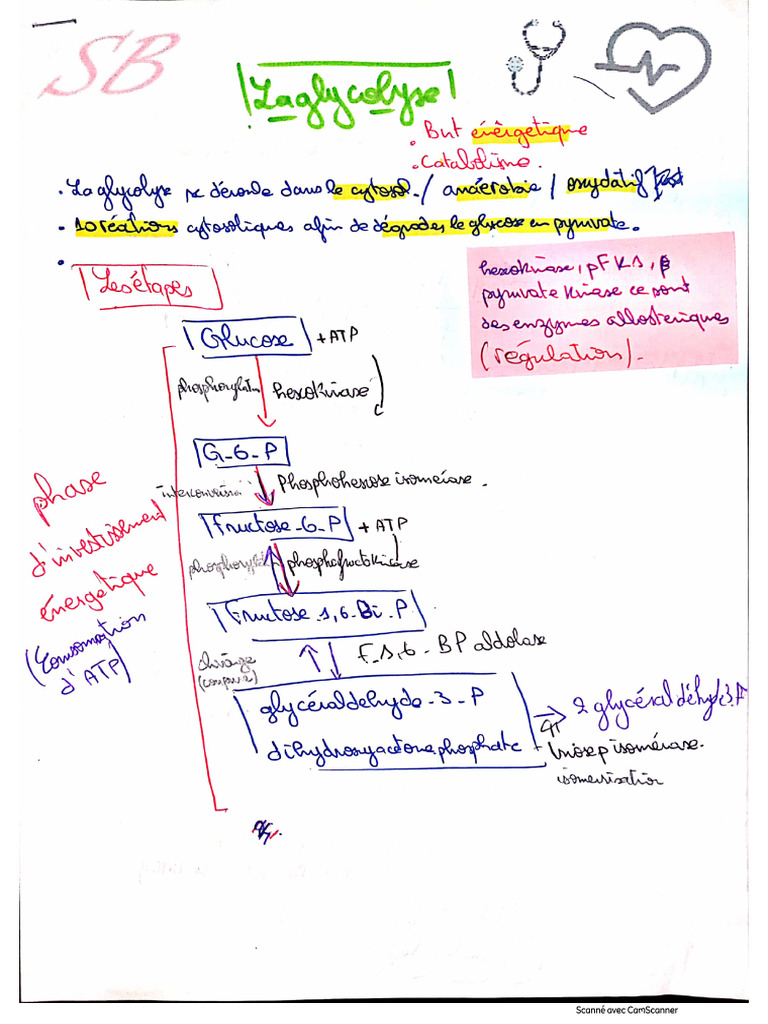 SB
La glycolyse
. But énèrgetique
. Catabolisme.
. La glycolyse se déroule dans le cytosol. / anaérobie / oxydatif
. 10 réactions cytosoliques afin de dégrader le glucose en pyruvate.
.
Les étapes
hexokinase, pFK1,
pyruvate kinase ce sont
des enzymes allosteriques
(régulation).
Glucose + ATP
hexokinase
G-6-P
Phosphohexose isomérase.
fructose-6-P + ATP
phosphofructokinase
fructose-1,6-Bi-P
F-1,6-BP aldolase
clivage
(coupure)
glycéraldehyde-3-P
dihydroxyacetone phosphate
2 glycéraldéhyde 3P
triose p isomérase.
isomerisation
phase
d'investissement
énergetique
(Consommation
d'ATP)
Scanné avec CamScanner